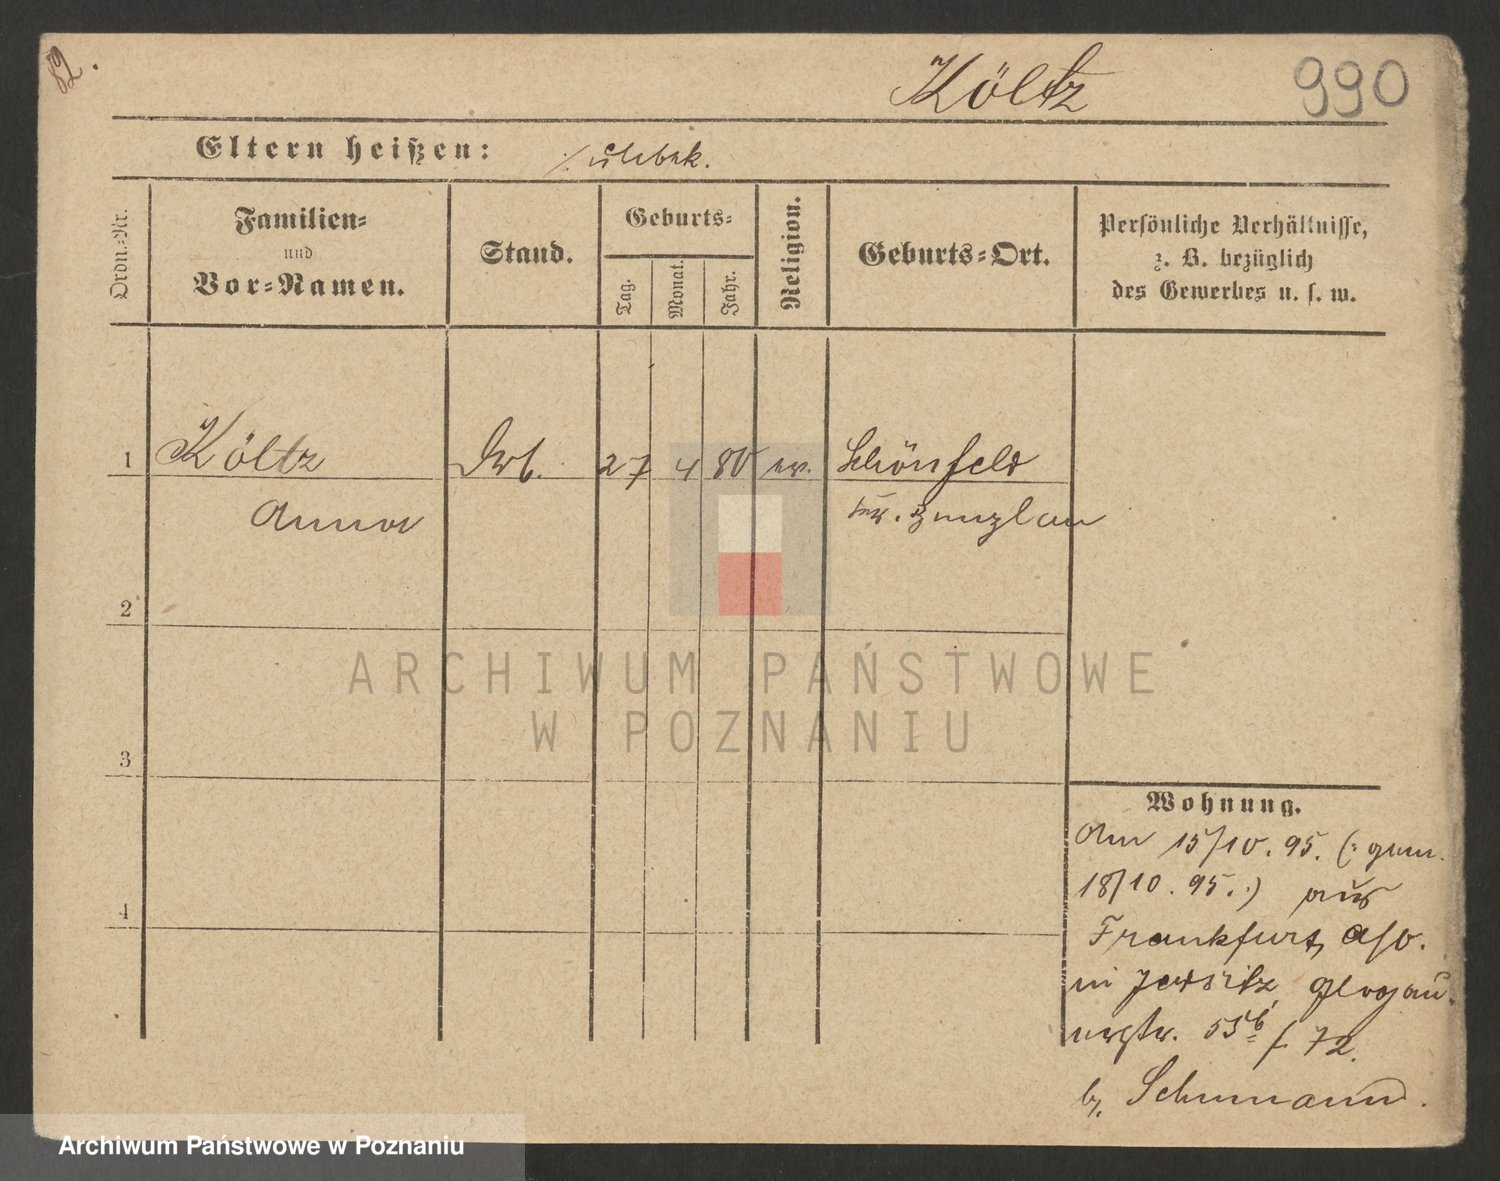 82.
Költz
990
Eltern heißen:
unbek.
Ordn.=Nr.
Familien=
und
Vor=Namen.
Stand.
Geburts=
Tag.
Monat.
Jahr.
Religion.
Geburts=Ort.
Persönliche Verhältnisse,
z. B. bezüglich
des Gewerbes u. s. w.
1
Költz
27
4
80
ev.
Schönfeld
Anna
Bunzlau
2
3
4
ARCHIWUM PAŃSTWOWE
W POZNANIU
Wohnung.
Am 15/10. 95. (: gem.
18/10. 95. :) aus
Frankfurt, a/o.
in Jersitz, Glogau-
erstr. 55b f 72.
b. Schumann.
Archiwum Państwowe w Poznaniu